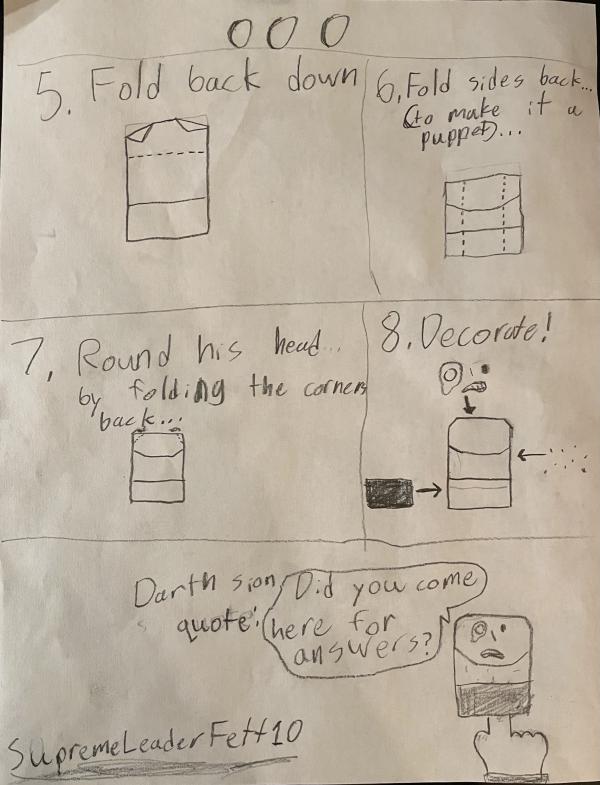 000
5. Fold back down
6. Fold sides back...
(to make it a
puppet)...
7. Round his head...
by folding the corners
back...
8. Decorate!
Darth sion
quote:
Did you come
here for
answers?
SupremeLeaderFett10